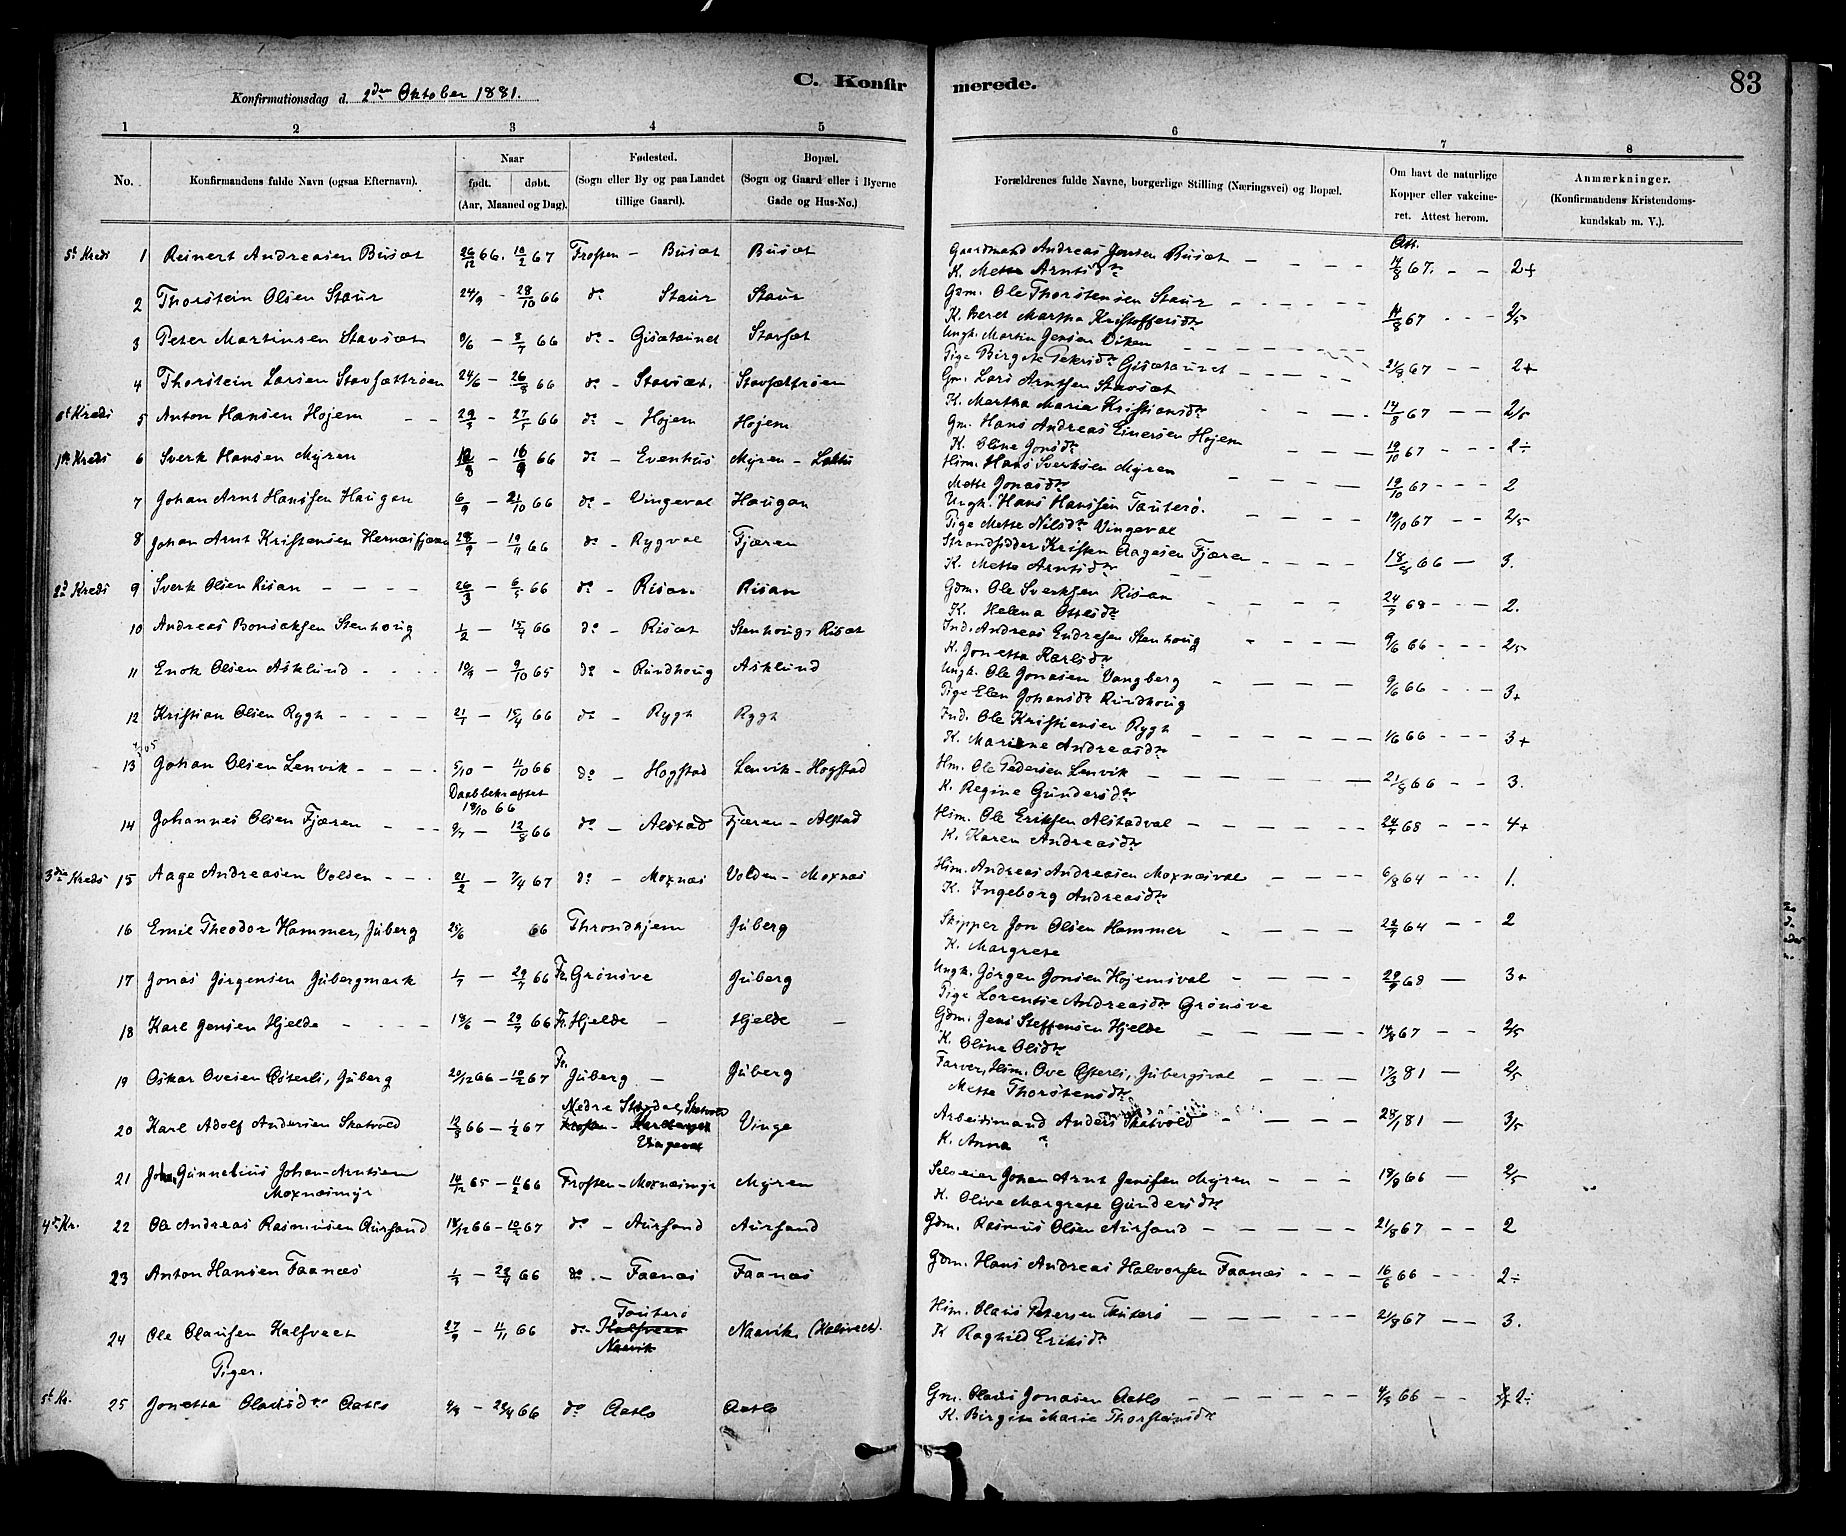 C. Konfirmerede. 83
Konfirmationsdag d. 2den Oktober 1881.
1 2 3 4 5 6 7 8
No. Konfirmandens fulde Navn (ogsaa Efternavn). Naar født. døbt. (Aar, Maaned og Dag). Fødested. (Sogn eller By og paa Landet tillige Gaard). Bopæl. (Sogn og Gaard eller i Byerne Gade og Hus-No.) Forældrenes fulde Navne, borgerlige Stilling (Næringsvei) og Bopæl. Om havt de naturlige Kopper eller vakcineret. Attest herom. Anmærkninger. (Konfirmandens Kristendomskundskab m. V.).
5t Kreds 1 Reinert Andreasen Busæt 26/12 66. 10/2 67 Frosten - Busæt Busæt Gaardmand Andreas Jensen Busæt Att.
K. Mette Arntsdr 14/8 67. 2+
2 Thorstein Olsen Staur 24/9 - 28/10 66 do Staur Staur Gdm. Ole Thorstensen Staur
K. Beret Martha Kristoffersdr 14/8 67 2/5
3 Peter Martinsen Stavsæt 8/6 - 8/7 66 do - Gisætaunet Stavsæt Ungk. Martin Jensen Viken
Pige Birgete Petersdr Gisætaunet 21/8 67 2+
4 Thorstein Larsen Stavsættrøen 24/6 - 26/8 66 do - Stavsæt. Stavsættrøen Gm. Lars Arntsen Stavsæt
K. Martha Maria Kristiansdr 14/8 67 2/5
6t Kreds 5 Anton Hansen Hojem 27/5 66 do - Hojem Hojem Gm. Hans Andreas Einersen Hojem
K. Oline Jonsdr 19/10 67 2÷
1ste Kreds 6 Sverk Hansen Myren 12/8 - 16/9 66 do - Evenhus Myren - Him. Hans Sverksen Myren
Mette Jonasdr 19/10 67 2
7 Johan Arnt Hansen Haugan 6/9 - 21/10 66 do - Vingeval Haugan Ungk. Hans Hansen Tauterø.
Pige Mette Nilsdr Vingeval 19/10 67 2/5
8 Johan Arnt Kristensen 28/9 - 19/11 66 do - Rygval Fjæren Strandsidder Kristen Aagesen Fjæren
K. Mette Arntsdr 18/8 66 3.
2d Kreds 9 Sverk Olsen Risan 26/3 - 6/5 66 do - Risan Risan Gdm. Ole Sverksen Risan
K. Helena Ottesdr 24/7 68 2.
10 Andreas Bonsaksen Stenhoug 1/2 - 15/4 66 do - Risæt Stenhoug, Risæt Ind. Andreas Endresen Stenhoug
K. Jonetta Karlsdr 9/6 66 2/5
11 Enok Olsen Asklund 10/9 - 9/10 65 do - Rindhoug Asklund Ungk. Ole Jonasen Vangberg
Pige Elen Johansdr Rindhoug 9/6 66 3+
12 Kristian Olsen Rygh 21/1 - 15/4 66 do - Rygh Rygh Ind. Ole Kristiansen Rygh
K. Mariene Andreasdr 1/6 66 3+
13 Johan Olsen Lenvik 5/10 - 11/10 66 do - Hogstad Lenvik - Hogstad Hm. Ole Pedersen Lenvik
Daabbekræftet 18/10 66 K. Regine Gundersdr 21/8 66 3.
14 Johannes Olsen Fjæren 9/7 - 12/8 66 do - Alstad Fjæren - Alstad Him. Ole Eriksen Alstadval
K. Karen Andreasdr 24/7 68 4+
3die Kreds 15 Aage Andreasen Volden 21/2 - 7/4 67 do - Moxnæs Volden - Moxnæs Him. Andreas Andreasen Moxnæsval
K. Ingeborg Andreasdr 6/8 64 1.
16 Emil Theodor Hammer, Juberg 25/6 66 Throndhjem Juberg Skipper Jon Olsen Hammer
K. Margrete 22/7 64 2
17 Jonas Jørgensen Jubergmark 1/7 - 29/7 66 Fr. Grønsve Juberg Ungk. Jørgen Jonsen Hojemsval
Pige Lorentse Andreasdr Grønsve 29/9 68 3+
18 Karl Jensen Hjelde 18/6 - 29/7 66 Fr. Hjelde Hjelde Gdm. Jens Steffensen Hjelde
K. Oline Olsdr 14/8 67 2/5
19 Oskar Ovesen Østerli, Juberg 20/12 66 - 10/2 67 Fr. Juberg Juberg Farver, Him. Ove Østerli, Jubergsval
Mette Thorstensdr 17/3 81 2/5
20 Karl Adolf Andersen Skatvold 12/9 66 - 1/2 67 Nedre Stjørdal, Skatvold Vingeval Vinge Arbeidsmand Anders Skatvold
K. Anna 28/1 81 3/5
21 Gunnelius Johan-Arntsen Moxnæsmyr 14/12 65 - 11/2 66 Frosten - Moxnæsmyr Myren Selveier Johan Arnt Jensen Myren 18/9 66 2/5
K. Olive Margrete Gundersdr
4de Kr. 22 Ole Andreas Rasmusen Aursand 18/12 66 - 10/2 67 do - Aursand Aursand Gdm. Rasmus Olsen Aursand 21/8 67 2
23 Anton Hansen Faanæs 1/3 - 22/4 66 do - Faanæs Faanæs Gdm. Hans Andreas Halvorsen Faanæs 16/6 66 2÷
24 Ole Olausen Kalsveet 27/9 - 4/11 66 do Tauterø Kalsveet Naavik Naavik (Kalsveet). Him. Olaus Petersen Tauterø 21/8 67 3.
K Ragnild Eriksdr
Piger.
5t Kr. 25 Jonetta Olausdr Aatlo 28/4 66 do Aatlo Aatlo Gm. Olaus Jonasen Aatlo 66 2÷
K. Birgite Marie Thorsteinsdr